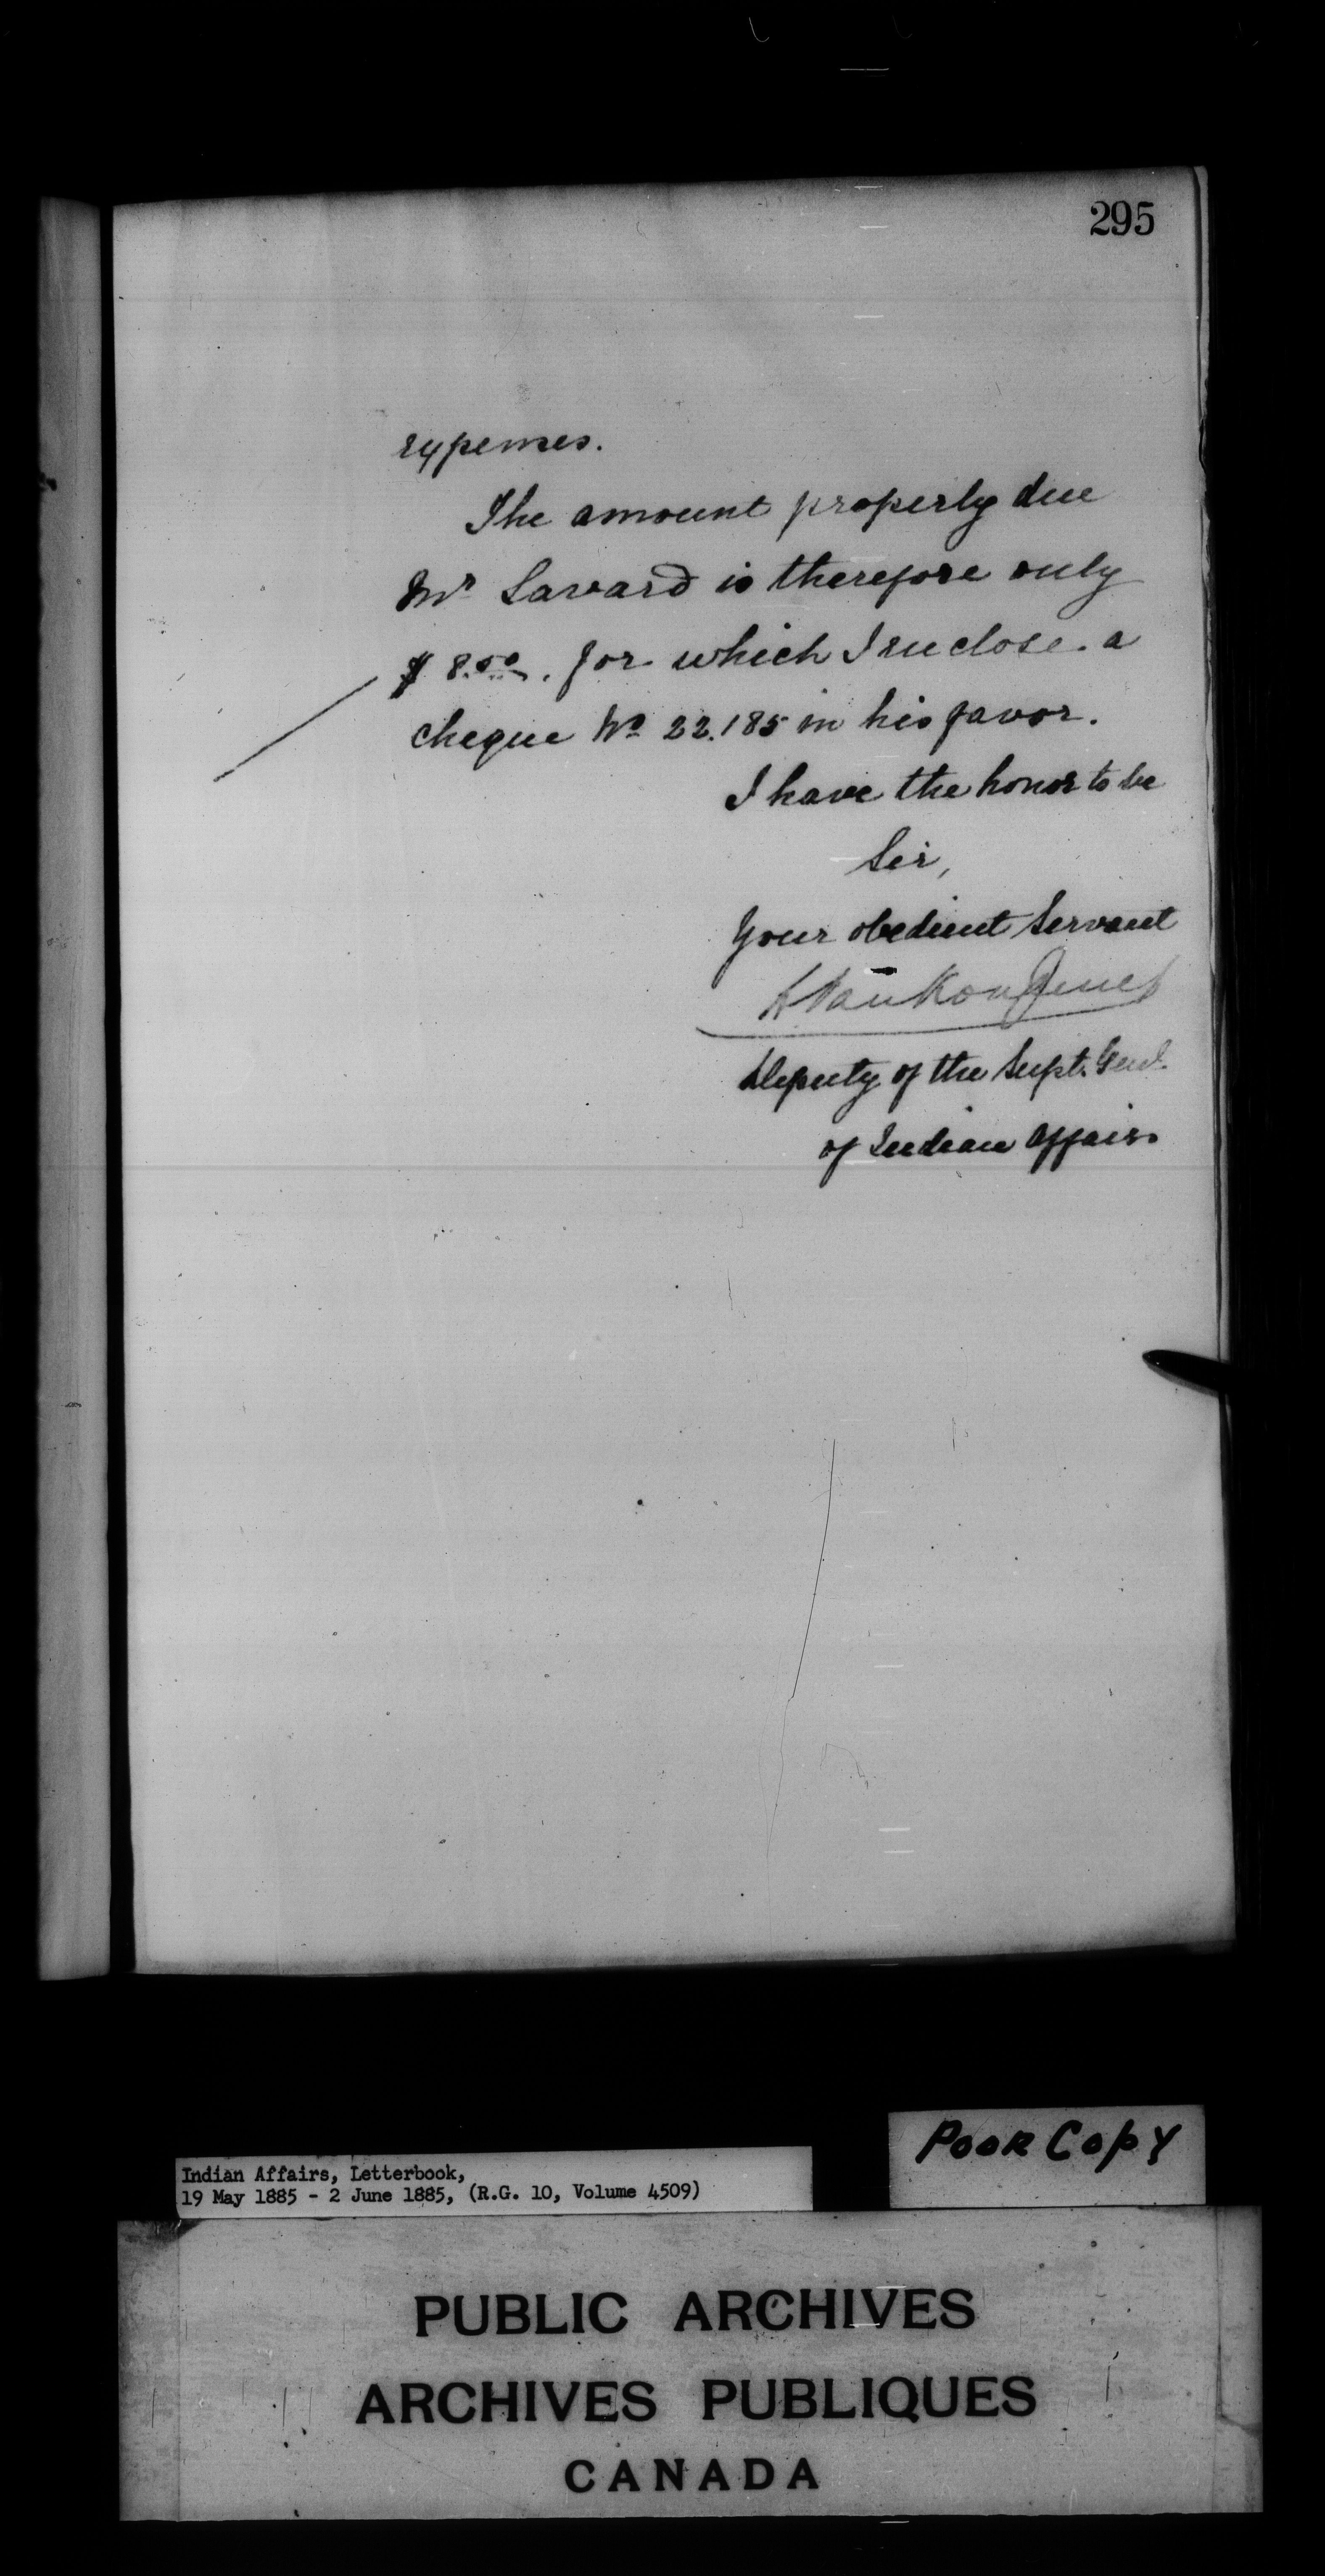 295
expenses.
The amount properly due
Mr Savard is therefore only
$8.50. for which I enclose a
cheque No 22.185 in his favor.
I have the honor to be
Sir,
Your obedient Servant
L VanKoughnet
Deputy of the Supt. Genl.
of Indian Affairs
Poor Copy
Indian Affairs, Letterbook,
19 May 1885 - 2 June 1885, (R.G. 10, Volume 4509)
PUBLIC ARCHIVES
ARCHIVES PUBLIQUES
CANADA